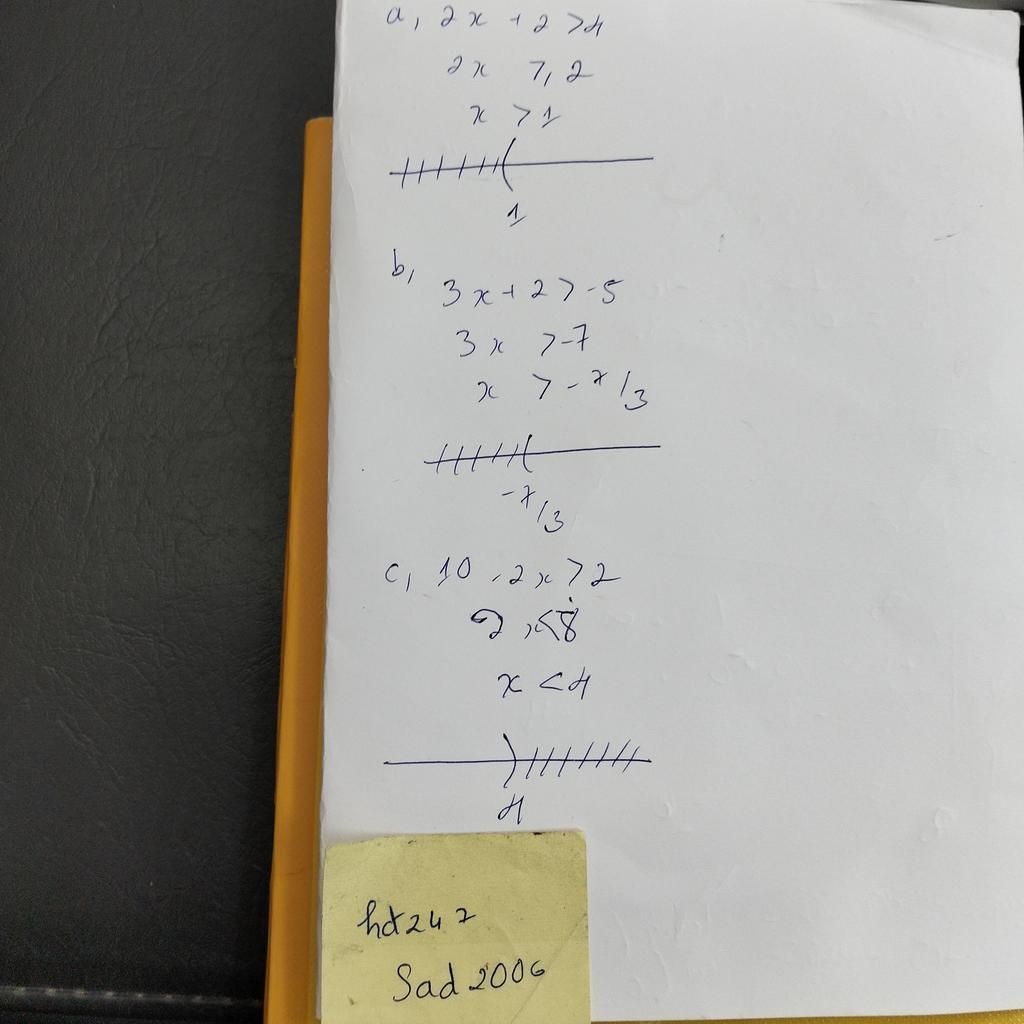 a, 2x + 2 > 4
2x >, 2
x > 1
1
b,
3x + 2 > -5
3x > -7
x > -7/3
-7/3
c, 10 - 2x > 2
2x < 8
x < 4
4
hdt247
Sad 2006